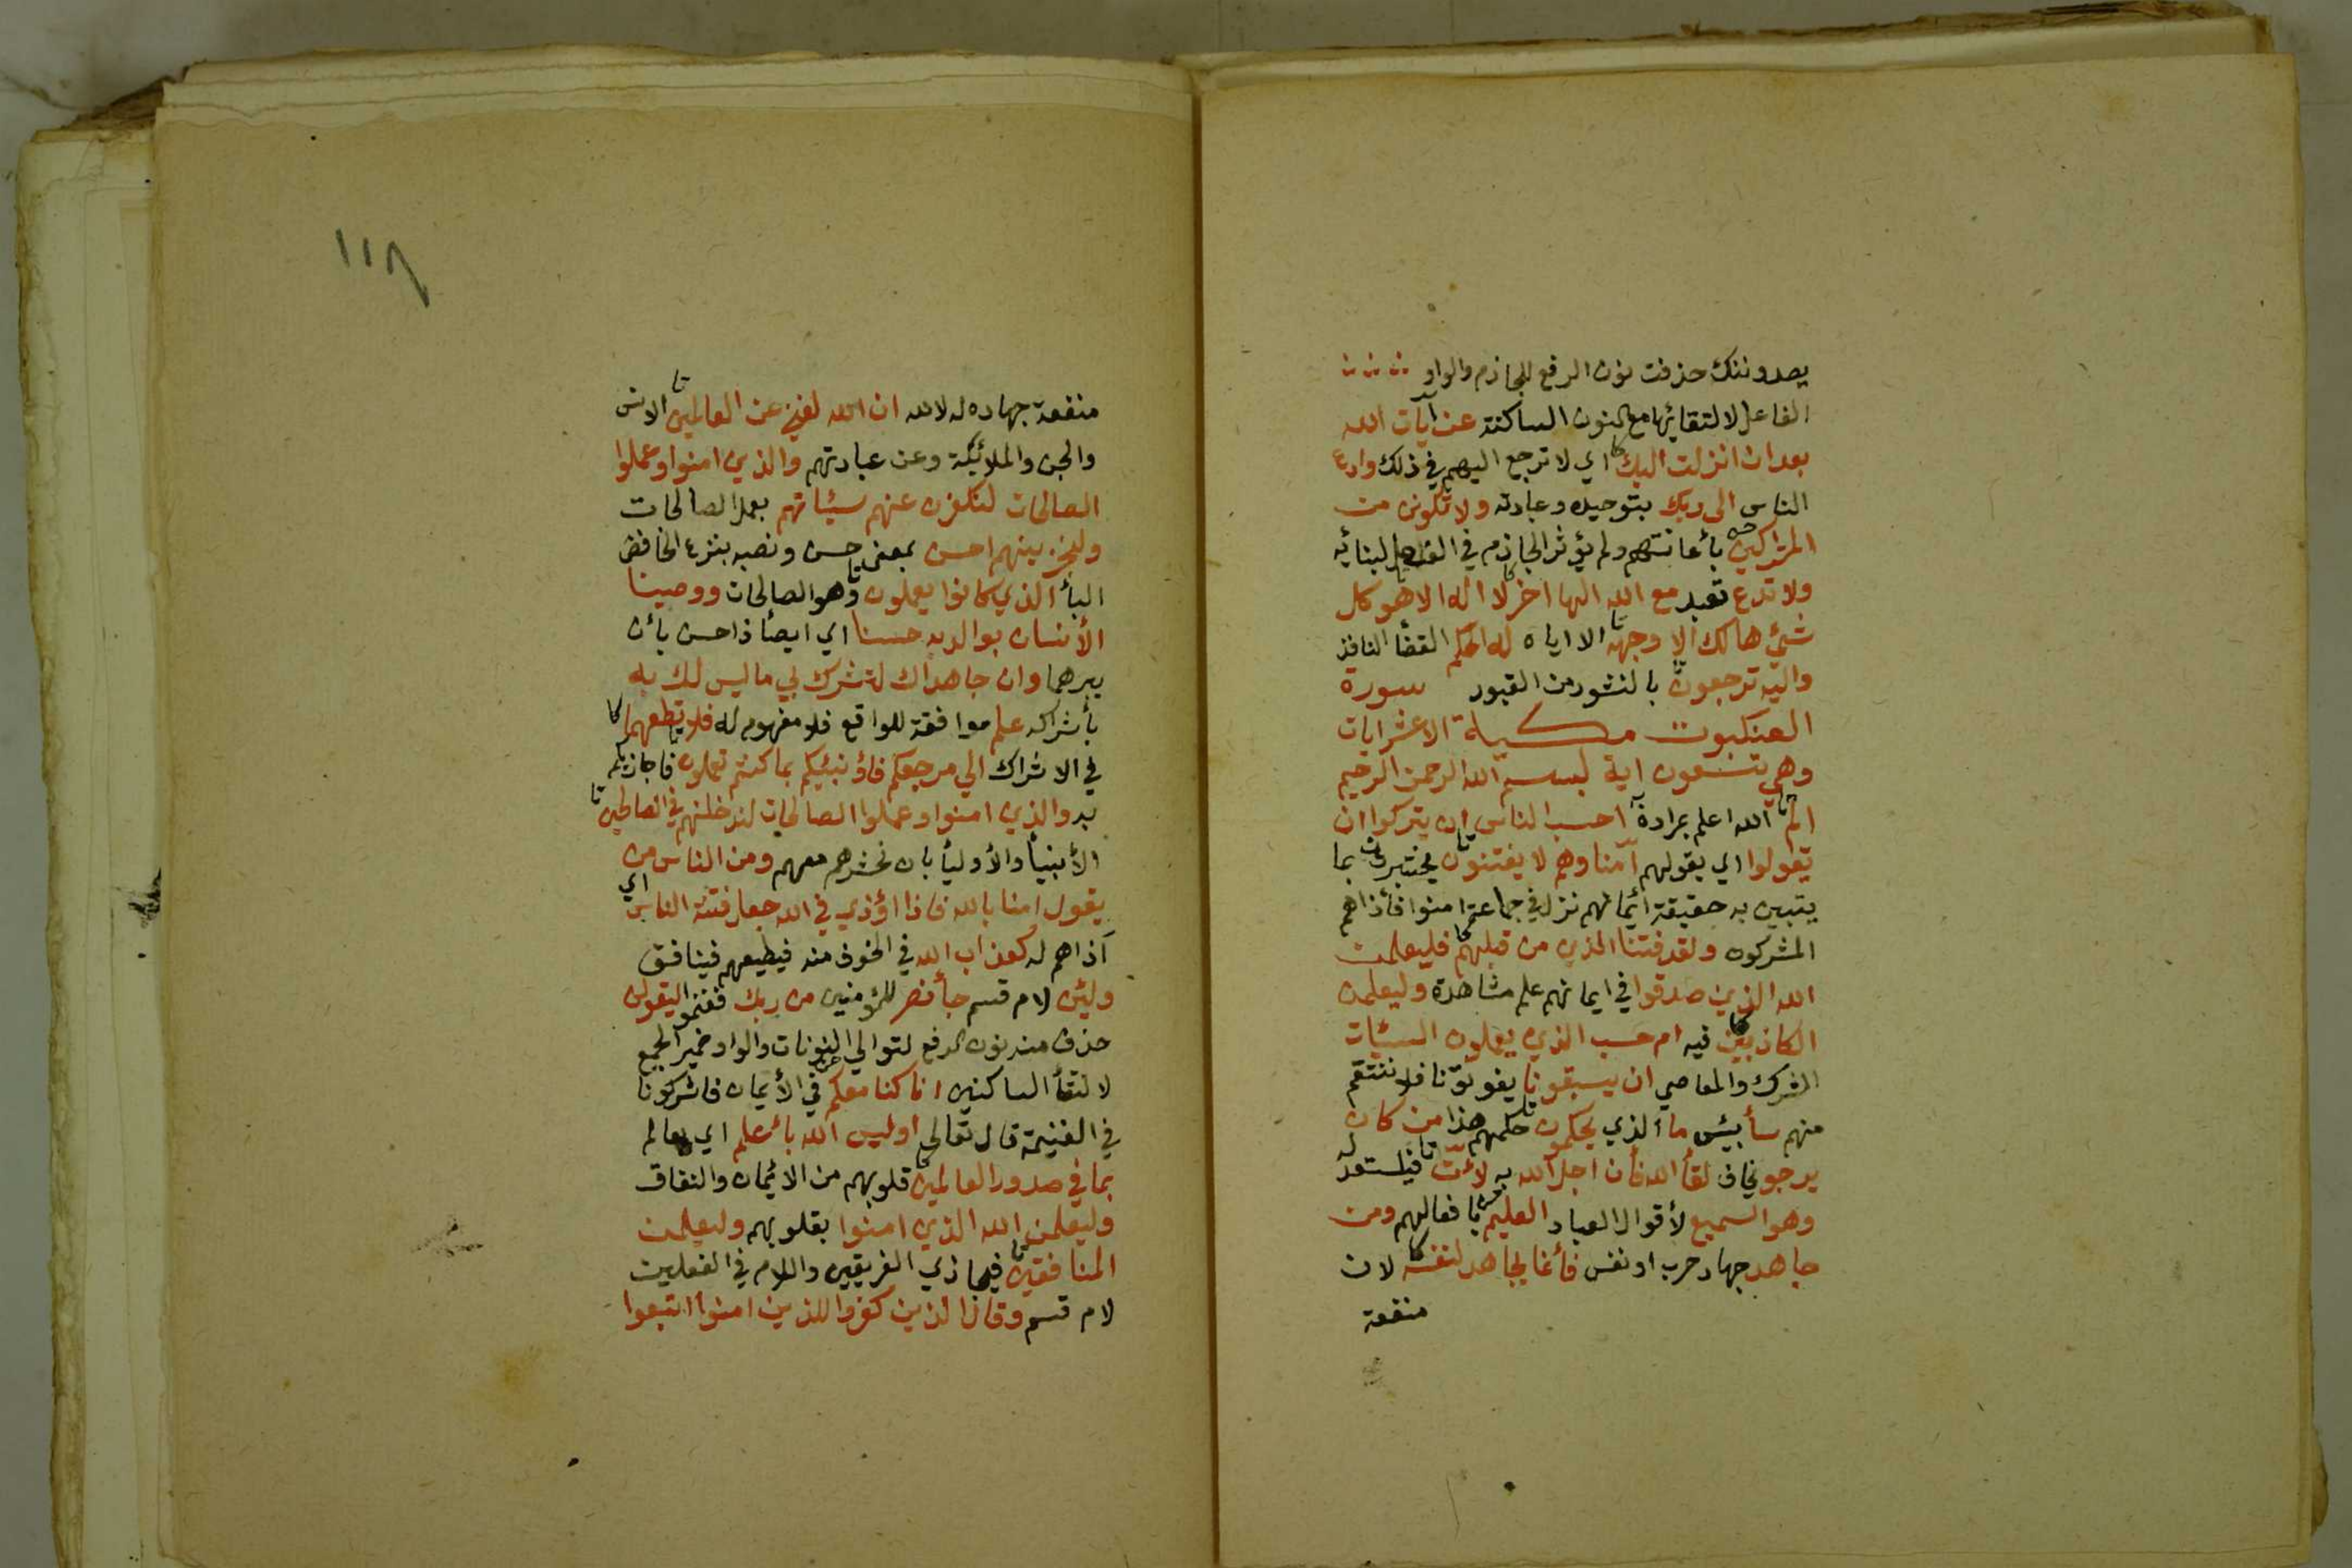 يصدوننك حذفت نون الرفع للجازم والواو
الفاعل لالتقائها مع النون الساكنة عن آيات الله
بعد ان انزلت اليك كا اي لا ترجع اليهم في ذلك وادع
الناس الى ربك بتوحيده وعبادته ولا تكونن من
المشركين بأعانتهم ولم يؤثر الجازم في الفعل لبنائه
ولا تدع تعبد مع الله الها اخر لا اله الا هو كل
شئ هالك الا وجهه الا اياه له الحكم القضأ النافذ
واليه ترجعون بالنشور من القبور سورة
العنكبوت مكية الا عشر ايات
وهي تسعون اية بسم الله الرحمن الرحيم
الم الله اعلم بمرادة احسب الناس ان يتركوا ان
يقولوا اي بقولهم آمنا وهم لا يفتنون يختبرون بما
يتبين به حقيقة ائمانهم نزل في جماعة امنوا فأذاهم
المشركون ولقد فتنا الذين من قبلهم فليعلمن
الله الذين صدقوا في ايمانهم علم مشاهدة وليعلمن
الكاذبين فيه ام حسب الذين يعملون السيئات
الشرك والمعاصي ان يسبقونا يفوتونا فلا ننتقم
منهم سأ بيئس ما الذي يحكمون حكمهم هذا من كان
يرجو يخاف لقأ الله فأن اجل الله به لأت فليستعد له
وهو السميع لأقوال العباد العليم بأفعالهم ومن
جاهد جهاد حرب او نفس فأنما يجاهد لنفسه لان
منفعة
١١٨
منفعة جهاده له لا لله ان الله لغني عن العالمين الانس
والجن والملائيكة وعن عبادتهم والذين امنوا وعملوا
الصالحات لنكفرن عنهم سيئاتهم بعمل الصالحات
ولنجزينهم احسن بمعنى حسن ونصبه بنزع الخافض
البأ الذي كانوا يعملون وهو الصالحات ووصينا
الأنسان بوالديه حسنا اي ايصأ ذا حسن بأن
يبرهما وان جاهداك لتشرك بي ما ليس لك به
بأشراكه علم موافقة للواقع فلا مفهوم له فلا تطعهما كا
في الاشراك الي مرجعكم فأونبئكم بما كنتم تعملون فاجازيكم
به والذين امنوا وعملوا الصالحات لندخلنهم في الصالحين
الأنبيأ والأوليأ بان نحشرهم معهم ومن الناس من
يقول امنا بالله فاذا اؤذي في الله جعل فتنة الناس اي
آذاهم له كعذاب الله في الخوف منه فيطيعهم فينافق
ولئن لام قسم جأ نصر للمؤمنين من ربك فغنموا ليقولن
حذف منه نون الرفع لتوالي النونات والواو ضمير الجمع
لالتقأ الساكنين انا كنا معكم في الأيمان فاشركونا
في الغنيمة قال تعالى اوليس الله بأعلم اي بعالم
بما في صدور العالمين قلوبهم من الائمان والنفاق
وليعلمن الله الذين امنوا بقلوبهم وليعلمن
المنافقين فيجازي الفريقين واللام في الفعلين
لام قسم وقال الذين كفروا للذين امنوا اتبعوا